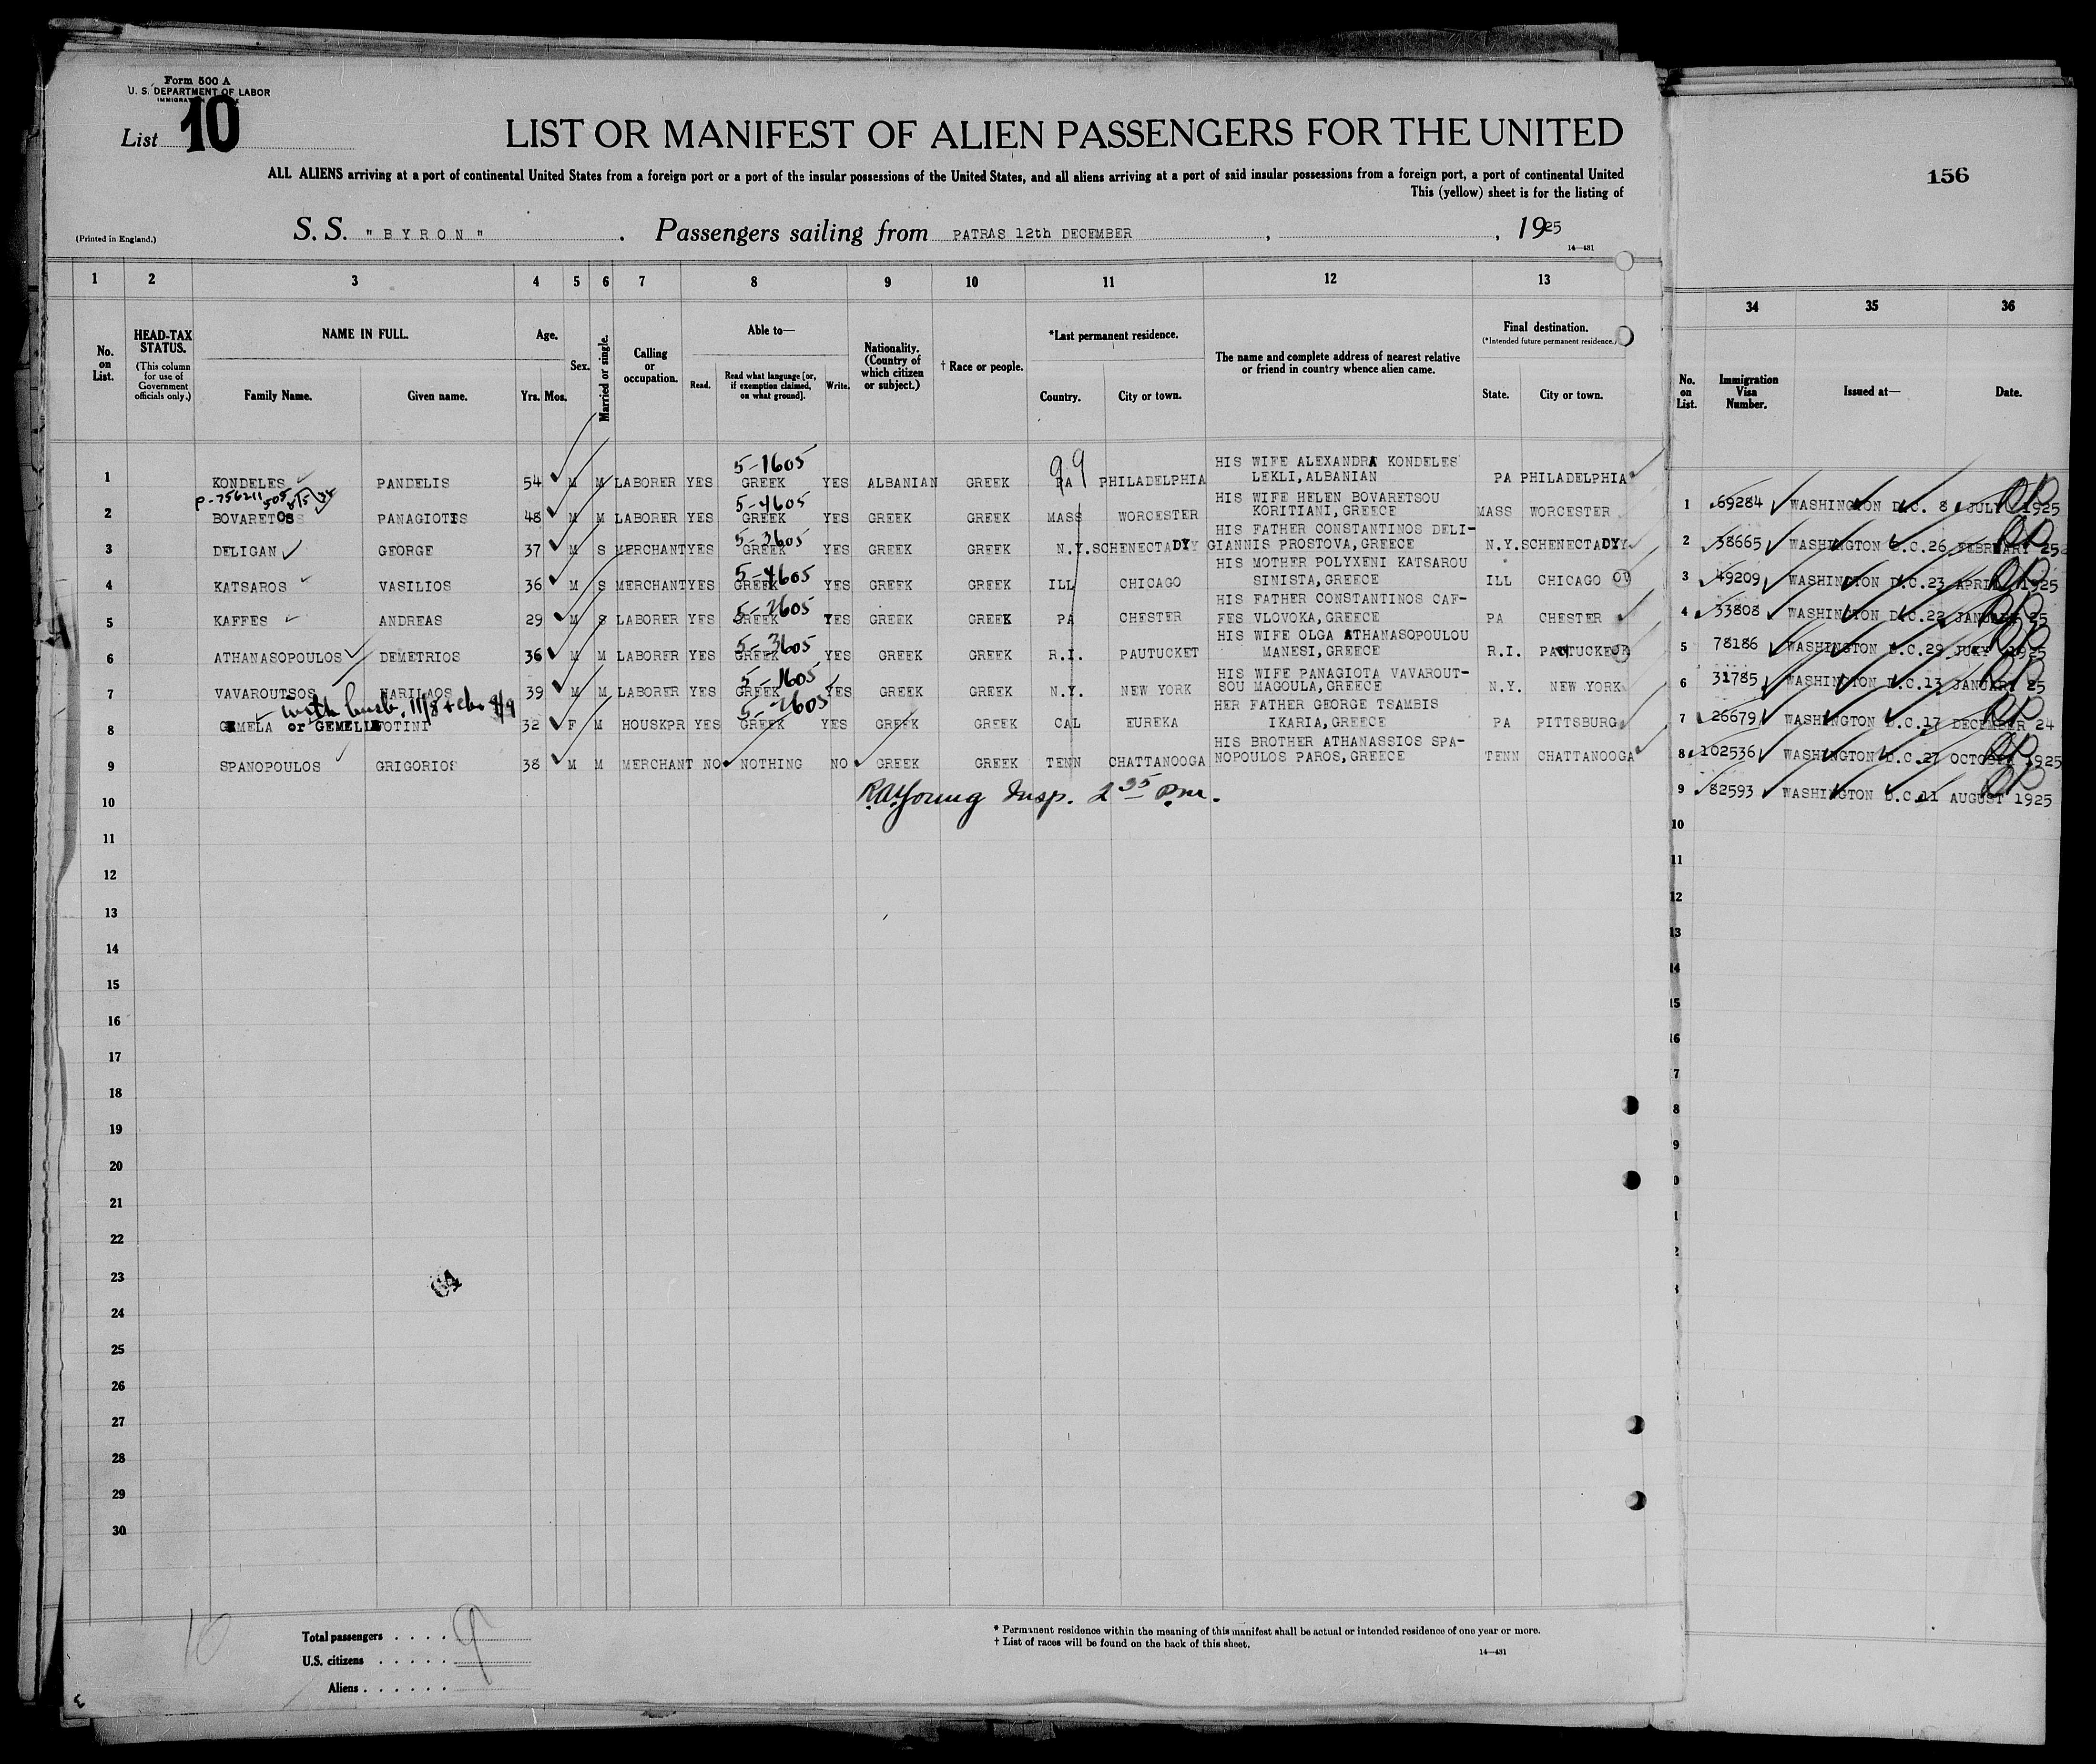 Form 500 A
U. S. DEPARTMENT OF LABOR
List 10
LIST OR MANIFEST OF ALIEN PASSENGERS FOR THE UNITED
ALL ALIENS arriving at a port of continental United States from a foreign port or a port of the insular possessions of the United States, and all aliens arriving at a port of said insular possessions from a foreign port, a port of continental United
This (yellow) sheet is for the listing of
156
(Printed in England.)
S. S. " B Y R O N " . Passengers sailing from PATRAS 12th DECEMBER , , 1925
14—431
1 2 3 4 5 6 7 8 9 10 11 12 13 34 35 36
No. on List.
HEAD-TAX STATUS.
(This column for use of Government officials only.)
NAME IN FULL.
Family Name. Given name.
Age.
Yrs. Mos.
Sex.
Married or single.
Calling or occupation.
Able to—
Read. Read what language [or, if exemption claimed, on what ground]. Write.
Nationality. (Country of which citizen or subject.)
† Race or people.
*Last permanent residence.
Country. City or town.
The name and complete address of nearest relative or friend in country whence alien came.
Final destination.
(*Intended future permanent residence.)
State. City or town.
No. on List.
Immigration Visa Number.
Issued at—
Date.
5-1605 99
1 KONDELES PANDELIS 54 M M LABORER YES GREEK YES ALBANIAN GREEK PA PHILADELPHIA HIS WIFE ALEXANDRA KONDELES LEKLI,ALBANIAN PA PHILADELPHIA
P-756211 505
5-4605
2 BOVARETOS PANAGIOTIS 48 M M LABORER YES GREEK YES GREEK GREEK MASS WORCESTER HIS WIFE HELEN BOVARETSOU KORITIANI,GREECE MASS WORCESTER
5-3605
3 DELIGAN GEORGE 37 M S MERCHANT YES GREEK YES GREEK GREEK N.Y. SCHENECTADY HIS FATHER CONSTANTINOS DELI-GIANNIS PROSTOVA,GREECE N.Y. SCHENECTADY
5-4605
4 KATSAROS VASILIOS 36 M S MERCHANT YES GREEK YES GREEK GREEK ILL CHICAGO HIS MOTHER POLYXENI KATSAROU SINISTA,GREECE ILL CHICAGO
5-2605
5 KAFFES ANDREAS 29 M S LABORER YES GREEK YES GREEK GREEK PA CHESTER HIS FATHER CONSTANTINOS CAF-FES VLOVOKA,GREECE PA CHESTER
5-3605
6 ATHANASOPOULOS DEMETRIOS 36 M M LABORER YES GREEK YES GREEK GREEK R.I. PAUTUCKET HIS WIFE OLGA ATHANASOPOULOU MANESI,GREECE R.I.
5-1605
7 VAVAROUTSOS HARILAOS 39 M M LABORER YES GREEK YES GREEK GREEK N.Y. NEW YORK HIS WIFE PANAGIOTA VAVAROUT-SOU MAGOULA,GREECE N.Y. NEW YORK
with husb. 11/8
5-2605
8 GEMELA or GEMELL FOTINI 32 F M HOUSKPR YES GREEK YES GREEK GREEK CAL EUREKA HER FATHER GEORGE TSAMBIS IKARIA,GREECE PA PITTSBURG
9 SPANOPOULOS GRIGORIOS 38 M M MERCHANT NO NOTHING NO GREEK GREEK TENN CHATTANOOGA HIS BROTHER ATHANASSIOS SPA-NOPOULOS PAROS,GREECE TENN CHATTANOOGA
R.A.Young Insp. 2 35 P.m.
10
11
12
13
14
15
16
17
18
19
20
21
22
23
24
25
26
27
28
29
30
1 69284 WASHINGTON D.C. 8 JULY 1925
2 38665 WASHINGTON D.C.26 FEBRUARY 25
3 49209 WASHINGTON D.C.23 APRIL 1925
4 33808 WASHINGTON D.C.22 JANUARY 25
5 78186 WASHINGTON D.C.29 JULY 1925
6 31785 WASHINGTON D.C.13 JANUARY 25
7 26679 WASHINGTON D.C.17 DECEMBER 24
8 102536 WASHINGTON D.C.27 OCTOBER 1925
9 82593 WASHINGTON D.C.11 AUGUST 1925
10
11
12
13
14
15
16
10
Total passengers . . . . 9
U.S. citizens . . . . .
Aliens . . . . . .
* Permanent residence within the meaning of this manifest shall be actual or intended residence of one year or more.
† List of races will be found on the back of this sheet.
14—431